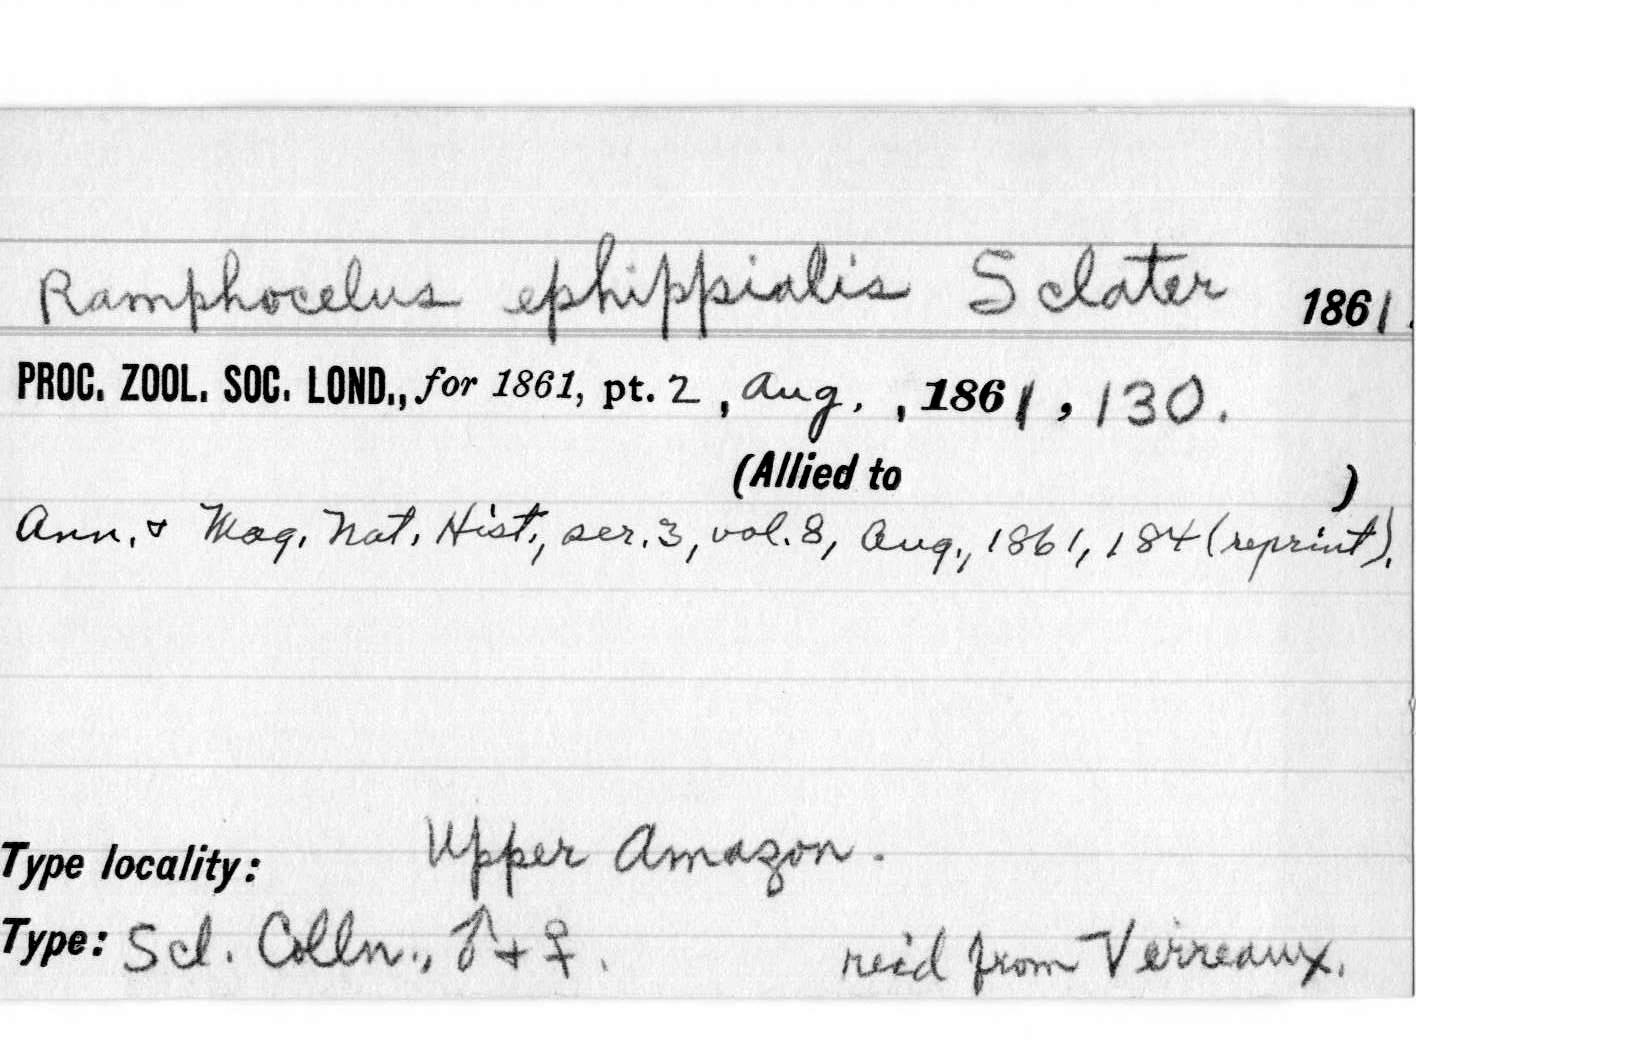 Ramphocelus ephippialis Sclater 1861.
PROC. ZOOL. SOC. LOND., for 1861, pt. 2, Aug., 1861, 130.
(Allied to )
Ann. & Mag. Nat. Hist., ser. 3, vol. 8, Aug., 1861, 184 (reprint).
Type locality: Upper Amazon.
Type: Scl. Colln., ♂ + ♀. rec'd from Verreaux.